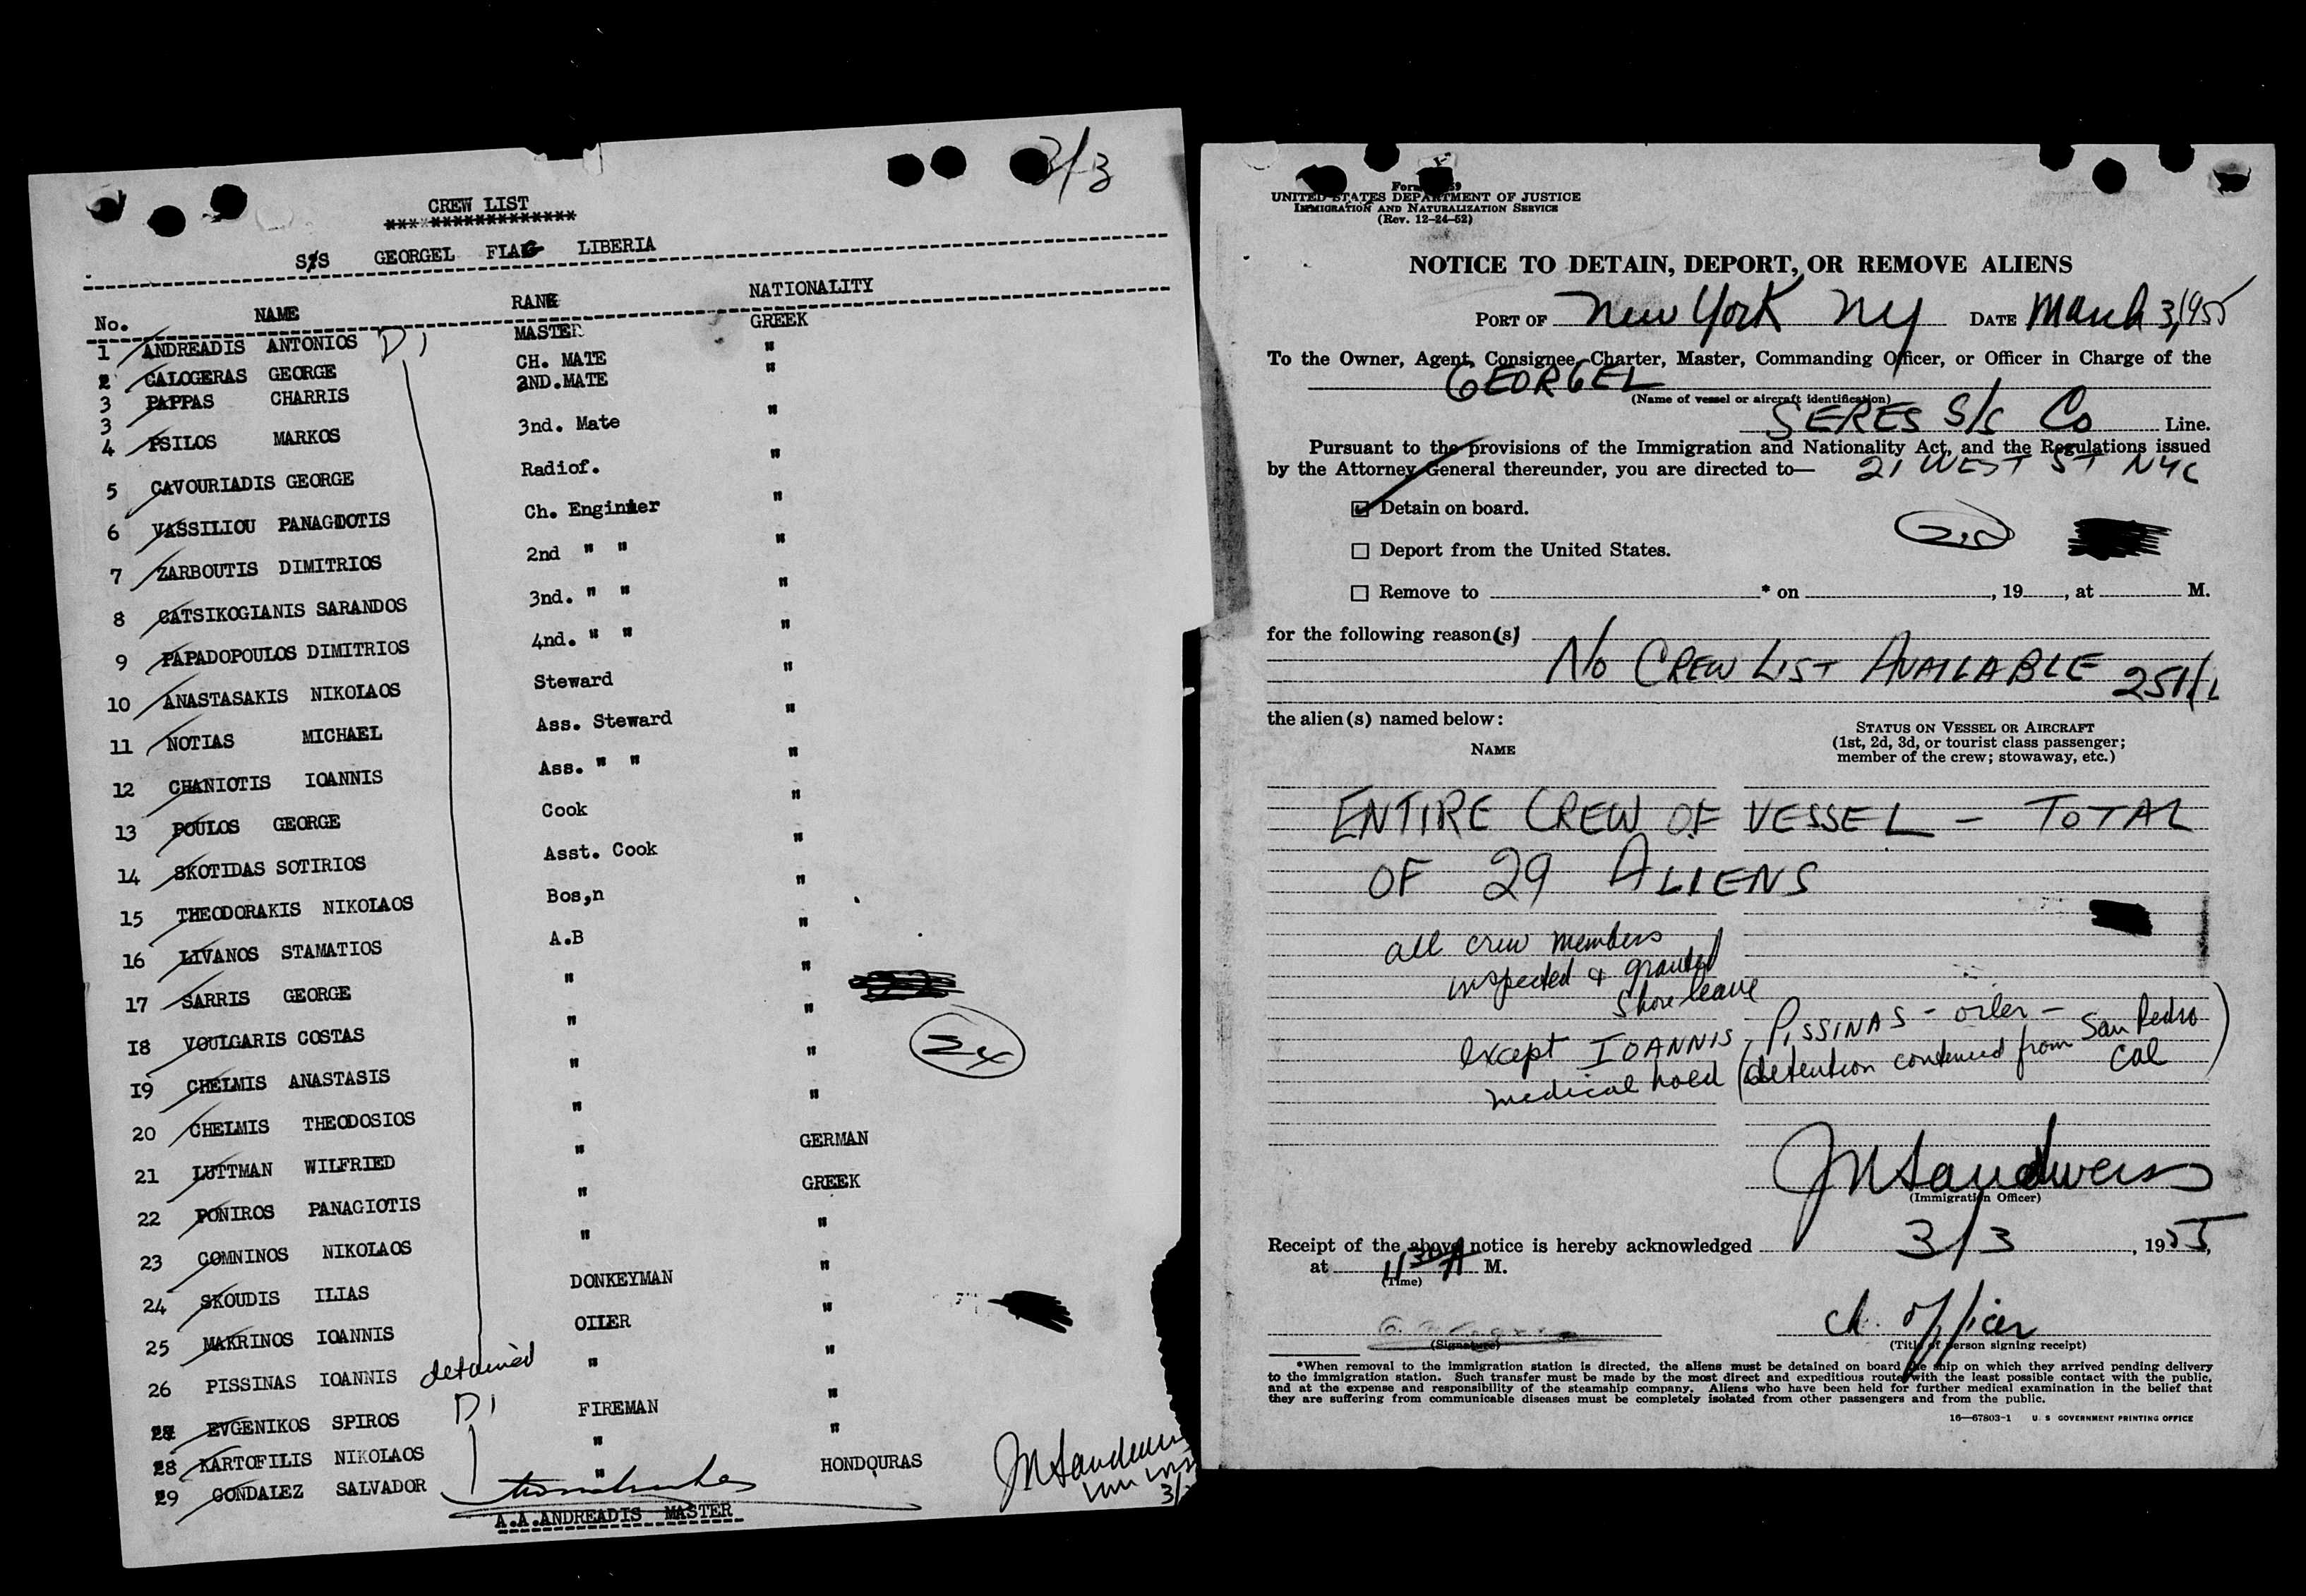 3/3
CREW LIST
S/S GEORGEL FLAG LIBERIA
No. NAME RANK NATIONALITY
1 ANDREADIS ANTONIOS D1 MASTER GREEK
2 CALOGERAS GEORGE CH. MATE "
3 PAPPAS CHARRIS 2ND.MATE "
3
4 PSILOS MARKOS 3nd. Mate "
5 CAVOURIADIS GEORGE Radiof. "
6 VASSILIOU PANAGIOTIS Ch. Enginier "
7 ZARBOUTIS DIMITRIOS 2nd " " "
8 CATSIKOGIANIS SARANDOS 3nd. " " "
9 PAPADOPOULOS DIMITRIOS 4nd. " " "
10 ANASTASAKIS NIKOLAOS Steward "
11 NOTIAS MICHAEL Ass. Steward "
12 CHANIOTIS IOANNIS Ass. " " "
13 POULOS GEORGE Cook "
14 SKOTIDAS SOTIRIOS Asst. Cook "
15 THEODORAKIS NIKOLAOS Bos,n "
16 LIVANOS STAMATIOS A.B "
17 SARRIS GEORGE " "
18 VOULGARIS COSTAS " "
24
19 CHELMIS ANASTASIS " "
20 CHELMIS THEODOSIOS " "
21 LUTTMAN WILFRIED " GERMAN
22 PONIROS PANAGIOTIS " GREEK
23 COMNINOS NIKOLAOS " "
24 SKOUDIS ILIAS DONKEYMAN "
25 MAKRINOS IOANNIS OILER "
26 PISSINAS IOANNIS detained " "
27 EVGENIKOS SPIROS D1 FIREMAN "
28 KARTOFILIS NIKOLAOS " "
29 GONDALEZ SALVADOR " HONDOURAS
A.A.ANDREADIS MASTER
JM Sandweiss
Form 259
UNITED STATES DEPARTMENT OF JUSTICE
IMMIGRATION AND NATURALIZATION SERVICE
(Rev. 12-24-52)
NOTICE TO DETAIN, DEPORT, OR REMOVE ALIENS
PORT OF New York NY DATE March 3, 1955
To the Owner, Agent, Consignee, Charter, Master, Commanding Officer, or Officer in Charge of the
GEORGEL
(Name of vessel or aircraft identification)
SERES S/S Co Line.
Pursuant to the provisions of the Immigration and Nationality Act, and the Regulations issued
by the Attorney General thereunder, you are directed to— 21 WEST ST NYC
Detain on board.
Deport from the United States.
Remove to * on , 19 , at M.
for the following reason(s)
NO CREW LIST AVAILABLE
the alien(s) named below:
NAME
STATUS ON VESSEL OR AIRCRAFT
(1st, 2d, 3d, or tourist class passenger;
member of the crew; stowaway, etc.)
ENTIRE CREW OF VESSEL - TOTAL
OF 29 ALIENS
all crew members
inspected & granted
shore leave
except IOANNIS, PISSINAS - oiler -
medical hold (detention continued from San Pedro
Cal)
JM Sandweiss
(Immigration Officer)
Receipt of the above notice is hereby acknowledged 3/3, 1955,
at 11 30 A M.
(Time)
(Signature)
ch. officer
(Title of person signing receipt)
*When removal to the immigration station is directed, the aliens must be detained on board the ship on which they arrived pending delivery
to the immigration station. Such transfer must be made by the most direct and expeditious route with the least possible contact with the public,
and at the expense and responsibility of the steamship company. Aliens who have been held for further medical examination in the belief that
they are suffering from communicable diseases must be completely isolated from other passengers and from the public.
16—67803-1 U. S. GOVERNMENT PRINTING OFFICE